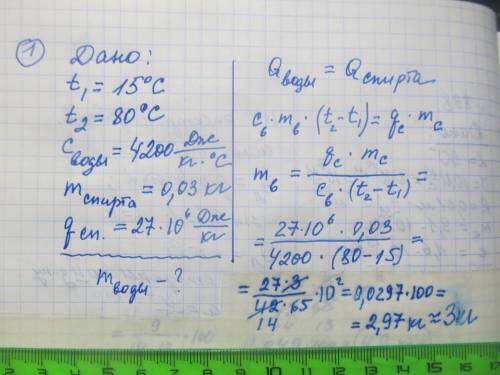 1 Дано:
t₁ = 15°C
t₂ = 80°C
Cводы = 4200 Дж/кг·°C
mспирта = 0,03 кг
qсп. = 27·10⁶ Дж/кг
mводы - ?
Qводы = Qспирта
cв·mв·(t₂-t₁) = qс·mс
mв = qс·mс / cв·(t₂-t₁) =
= 27·10⁶·0,03 / 4200·(80-15) =
= 27·3 / 42·65 ·10² = 0,0297·100 =
14
= 2,97 кг ≈ 3кг
1 2 3 4 5 6 7 8 9 10 11 12 13 14 15 16 17